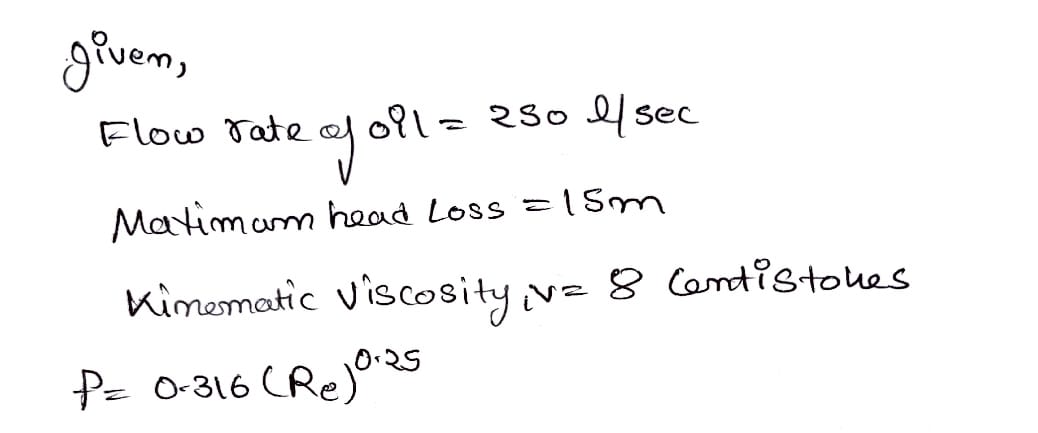 given,
Flow rate of oil = 250 l/sec
Maximum head Loss = 15m
Kinematic Viscosity, ν = 8 Centistokes
f = 0.316 (Re)^0.25